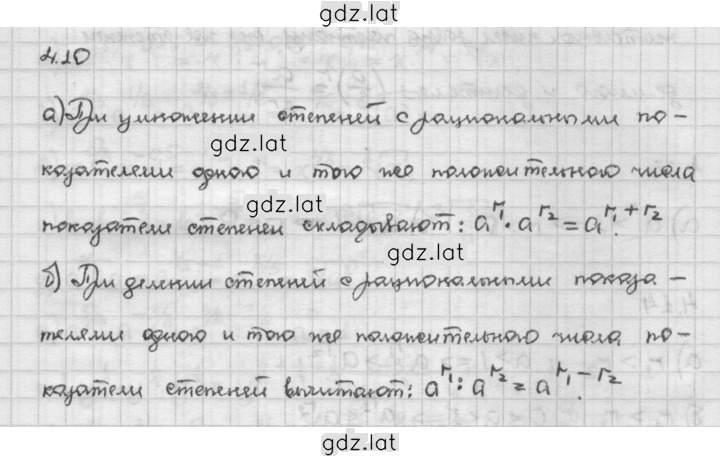 gdz.lat
4.10
а) При умножении степеней с рациональными по-
gdz.lat
казателями одного и того же положительного числа
gdz.lat
показатели степеней складывают: a^r₁ · a^r₂ = a^r₁ + r₂.
gdz.lat
б) При делении степеней с рациональными показа-
телями одного и того же положительного числа по-
казатели степеней вычитают: a^r₁ : a^r₂ = a^r₁ - r₂.
gdz.lat